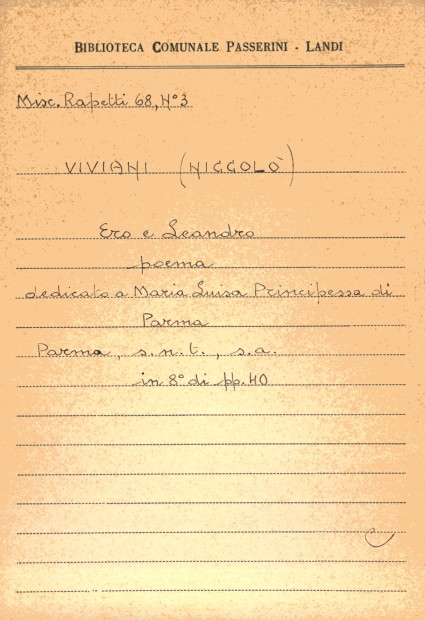 BIBLIOTECA COMUNALE PASSERINI - LANDI
Misc. Rapetti 68, N° 3
VIVIANI (NICCOLÒ)
Ero e Leandro
poema
dedicato a Maria Luisa Principessa di
Parma
Parma, s.n.t., s.a.
in 8° di pp. 40